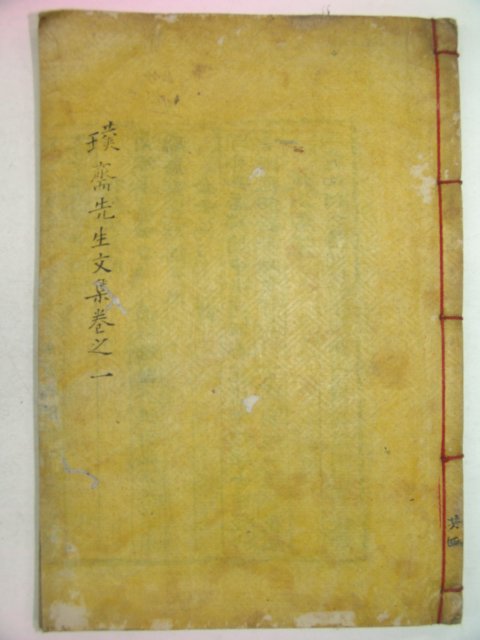 璞齋先生文集卷之一
共四